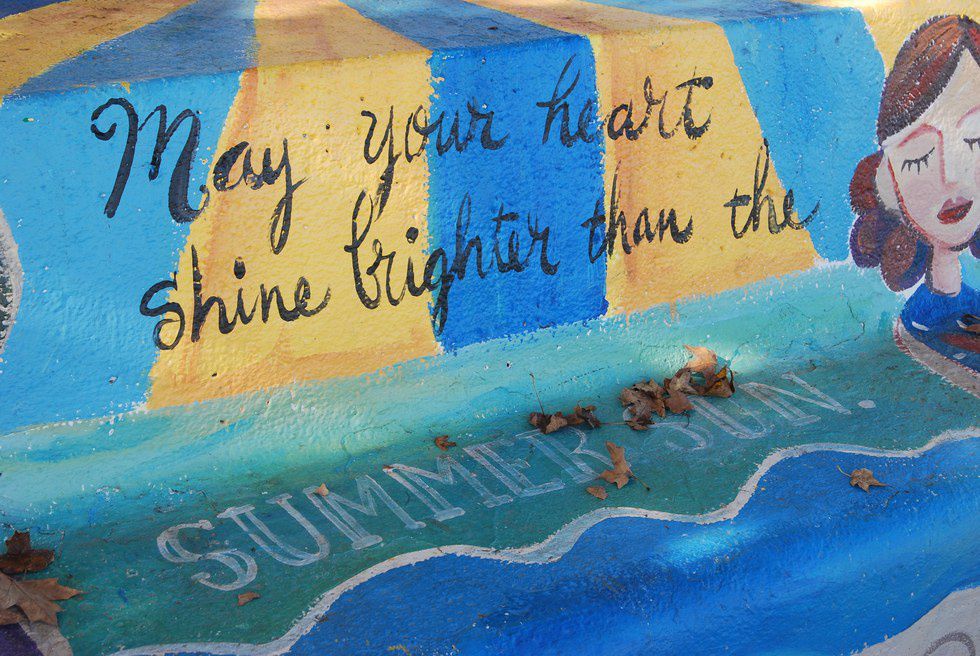 May your heart
shine brighter than the
SUMMER SUN.